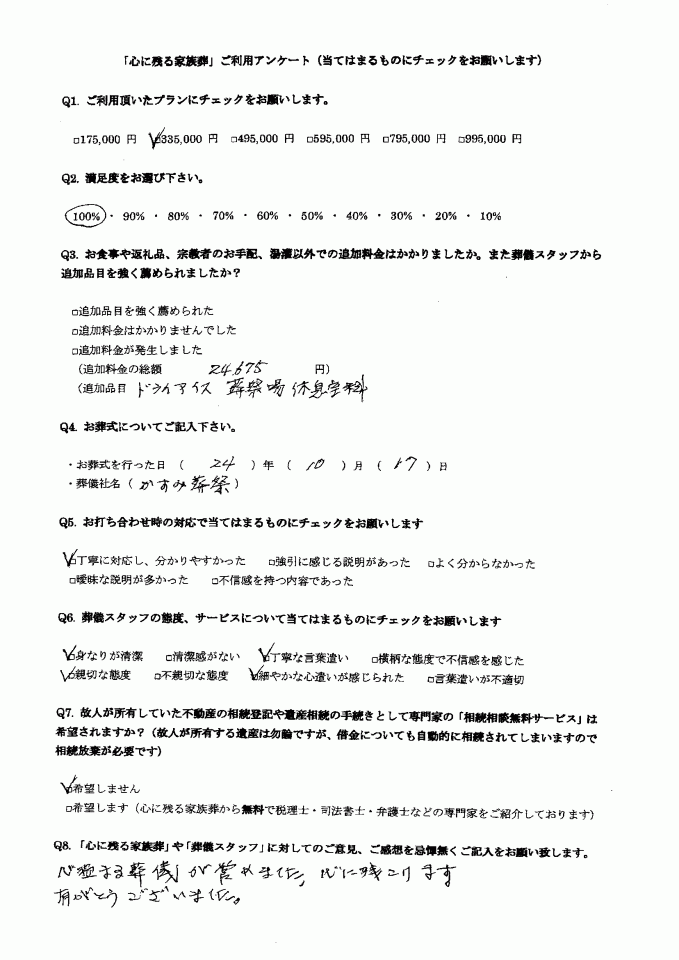 「心に残る家族葬」ご利用アンケート（当てはまるものにチェックをお願いします）
Q1. ご利用頂いたプランにチェックをお願いします。
□175,000 円 ☑335,000 円 □495,000 円 □595,000 円 □795,000 円 □995,000 円
Q2. 満足度をお選び下さい。
100%・ 90% ・ 80% ・ 70% ・ 60% ・ 50% ・ 40% ・ 30% ・ 20% ・ 10%
Q3. お食事や返礼品、宗教者のお手配、湯灌以外での追加料金はかかりましたか。また葬儀スタッフから
追加品目を強く薦められましたか？
□追加品目を強く薦められた
□追加料金はかかりませんでした
□追加料金が発生しました
（追加料金の総額 24,675 円）
（追加品目 ドライアイス 葬祭場休息室料
Q4. お葬式についてご記入下さい。
・お葬式を行った日 （ 24 ）年（ 10 ）月（ 17 ）日
・葬儀社名（ かすみ葬祭 ）
Q5. お打ち合わせ時の対応で当てはまるものにチェックをお願いします
☑丁寧に対応し、分かりやすかった □強引に感じる説明があった □よく分からなかった
□曖昧な説明が多かった □不信感を持つ内容であった
Q6. 葬儀スタッフの態度、サービスについて当てはまるものにチェックをお願いします
☑身なりが清潔 □清潔感がない ☑丁寧な言葉遣い □横柄な態度で不信感を感じた
☑親切な態度 □不親切な態度 ☑細やかな心遣いが感じられた □言葉遣いが不適切
Q7. 故人が所有していた不動産の相続登記や遺産相続の手続きとして専門家の「相続相談無料サービス」は
希望されますか？（故人が所有する遺産は勿論ですが、借金についても自動的に相続されてしまいますので
相続放棄が必要です）
☑希望しません
□希望します（心に残る家族葬から無料で税理士・司法書士・弁護士などの専門家をご紹介しております）
Q8. 「心に残る家族葬」や「葬儀スタッフ」に対してのご意見、ご感想を忌憚無くご記入をお願い致します。
葬儀が営めました。心に残ります
有がとうございました。